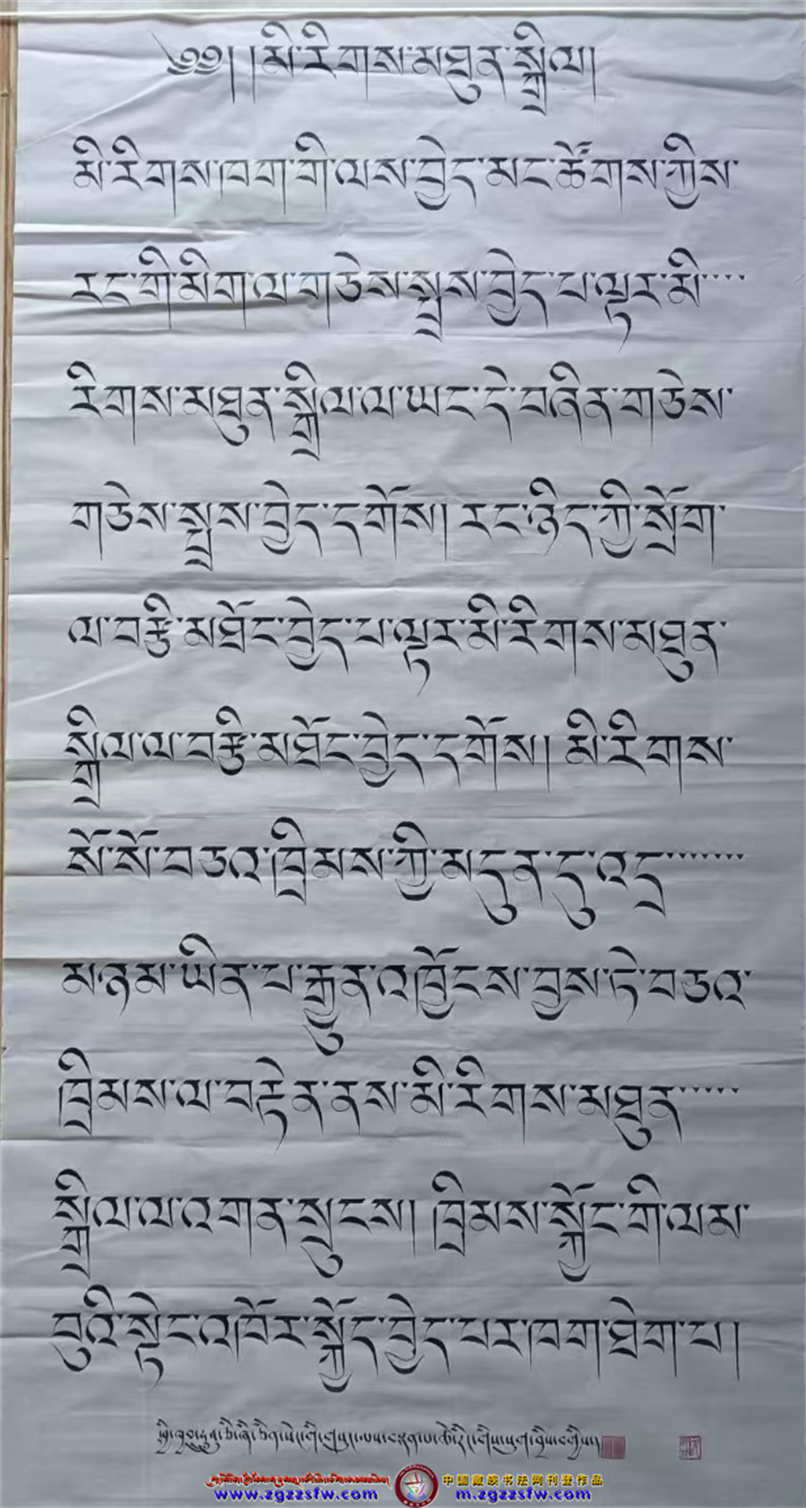 ༄༅། །མི་རིགས་མཐུན་སྒྲིལ།
མི་རིགས་ཁག་གི་ལས་བྱེད་མང་ཚོགས་ཀྱིས་
རང་གི་མིག་ལ་གཅེས་སྤྲས་བྱེད་པ་ལྟར་མི་་་་
རིགས་མཐུན་སྒྲིལ་ལ་ཡང་དེ་བཞིན་གཅེས་
གཅེས་སྤྲས་བྱེད་དགོས། རང་ཉིད་ཀྱི་སྲོག་
ལ་བརྩི་མཐོང་བྱེད་པ་ལྟར་མི་རིགས་མཐུན་
སྒྲིལ་ལ་བརྩི་མཐོང་བྱེད་དགོས། མི་རིགས་
སོ་སོ་བཅའ་ཁྲིམས་ཀྱི་མདུན་དུ་འདྲ་་་་་་་
མ་ཉམ་ཡིན་པ་རྒྱུན་འཁྱོངས་བྱས་ཏེ་བཅའ་
ཁྲིམས་ལ་བརྟེན་ནས་མི་རིགས་མཐུན་་་་་
སྒྲིལ་ལ་འགན་སྲུངས། ཁྲིམས་སྐྱོང་གི་ལམ་
བུའི་སྟེང་འཁོར་སྐྱོད་བྱེད་པར་ཁག་ཐེག་པ།
中国藏族书法网刊登作品
www.zgzzsfw.com m.zgzzsfw.com